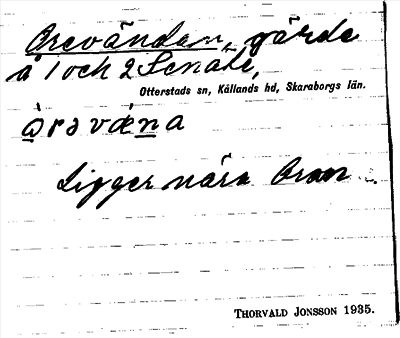 Orevändan, gärde
å 1 och 2 Senäte,
Otterstads sn, Kållands hd, Skaraborgs län.
òrəvæna
Ligger nära Oran
THORVALD JONSSON 1935.